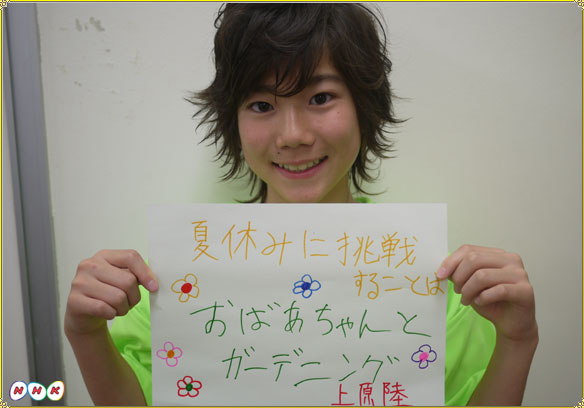 夏休みに挑戦
することは
おばあちゃんと
ガーデニング
上原陸
NHK